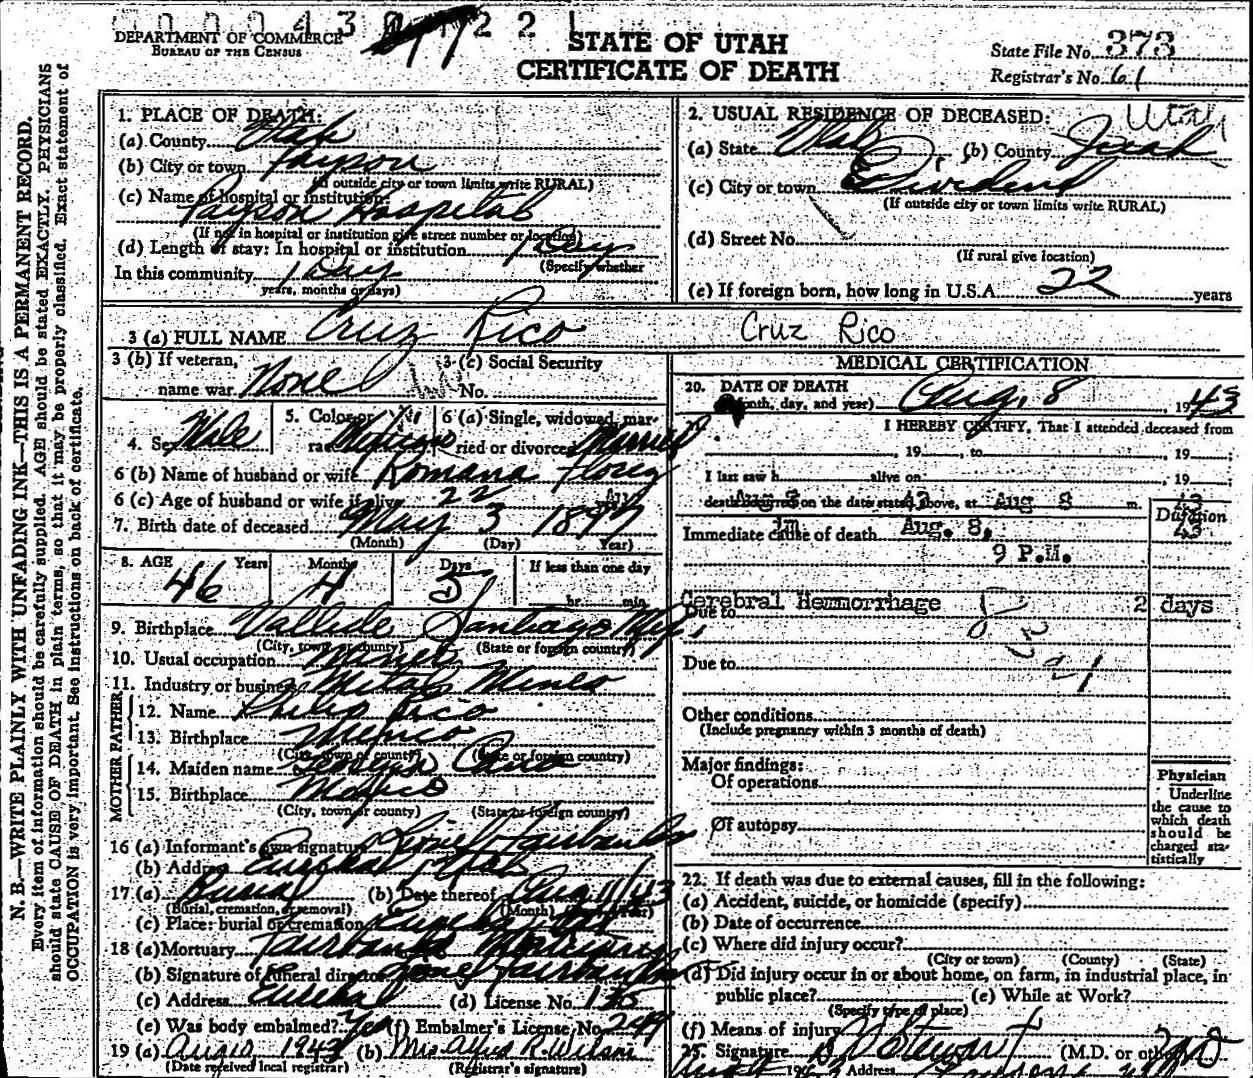 DEPARTMENT OF COMMERCE
BUREAU OF THE CENSUS
STATE OF UTAH
CERTIFICATE OF DEATH
State File No. 373
Registrar's No. 61
N. B.—WRITE PLAINLY WITH UNFADING INK—THIS IS A PERMANENT RECORD.
Every item of information should be carefully supplied. AGE should be stated EXACTLY. PHYSICIANS
should state CAUSE OF DEATH in plain terms, so that it may be properly classified. Exact statement of
OCCUPATION is very important. See instructions on back of certificate.
1. PLACE OF DEATH:
(a) County Utah
(b) City or town Payson
(If outside city or town limits write RURAL)
(c) Name of hospital or institution:
Payson Hospital
(If not in hospital or institution give street number or location)
(d) Length of stay: In hospital or institution 1 Day
(Specify whether
In this community 1 Day
years, months or days)
2. USUAL RESIDENCE OF DECEASED: Utah
(a) State Utah (b) County Juab
(c) City or town Dividend
(If outside city or town limits write RURAL)
(d) Street No.
(If rural give location)
(e) If foreign born, how long in U.S.A. 22 years
3 (a) FULL NAME Cruz Rico Cruz Rico
3 (b) If veteran,
name war None
3 (c) Social Security
No.
4. Sex Male
5. Color or
race
6 (a) Single, widowed, mar-
ried or divorced Married
6 (b) Name of husband or wife Romana
6 (c) Age of husband or wife if alive 22
7. Birth date of deceased May 3 1897
(Month) (Day) Year)
8. AGE Years Months Days If less than one day
46 4 5 hr. min.
9. Birthplace Santiago Mex.
(City, town or county) (State or foreign country)
10. Usual occupation Miner
11. Industry or business Metals Mines
FATHER
12. Name Philip Rico
13. Birthplace Mexico
(City, town or county) (State or foreign country)
MOTHER
14. Maiden name
15. Birthplace Mexico
(City, town or county) (State or foreign country)
16 (a) Informant's own signature Fairbanks
(b) Address Eureka Utah
17 (a) Burial (b) Date thereof Aug 11/43
(Burial, cremation, or removal) (Month) Year)
(c) Place: burial or cremation Eureka Utah
18 (a) Mortuary Fairbanks Mortuary
(b) Signature of funeral director Fairbanks
(c) Address Eureka (d) License No.
(e) Was body embalmed? Yes (f) Embalmer's License No. 249
19 (a) Aug 10 1943 (b) Mrs. R. Wilson
(Date received local registrar) (Registrar's signature)
MEDICAL CERTIFICATION
20. DATE OF DEATH
(Month, day, and year) Aug. 8, 1943
21. I HEREBY CERTIFY, That I attended deceased from
, 19 , to , 19 ;
I last saw h alive on , 19 ;
death occurred on the date stated above, at Aug 8 m.
Duration
Immediate cause of death Aug. 8,
9 P.M.
Cerebral Hemorrhage 2 days
Due to
Due to
Other conditions
(Include pregnancy within 3 months of death)
Major findings:
Of operations
Of autopsy
Physician
Underline
the cause to
which death
should be
charged sta-
tistically
22. If death was due to external causes, fill in the following:
(a) Accident, suicide, or homicide (specify)
(b) Date of occurrence
(c) Where did injury occur?
(City or town) (County) (State)
(d) Did injury occur in or about home, on farm, in industrial place, in
public place? (e) While at Work?
(Specify type of place)
(f) Means of injury
Signature Stewart (M.D. or other)
Address